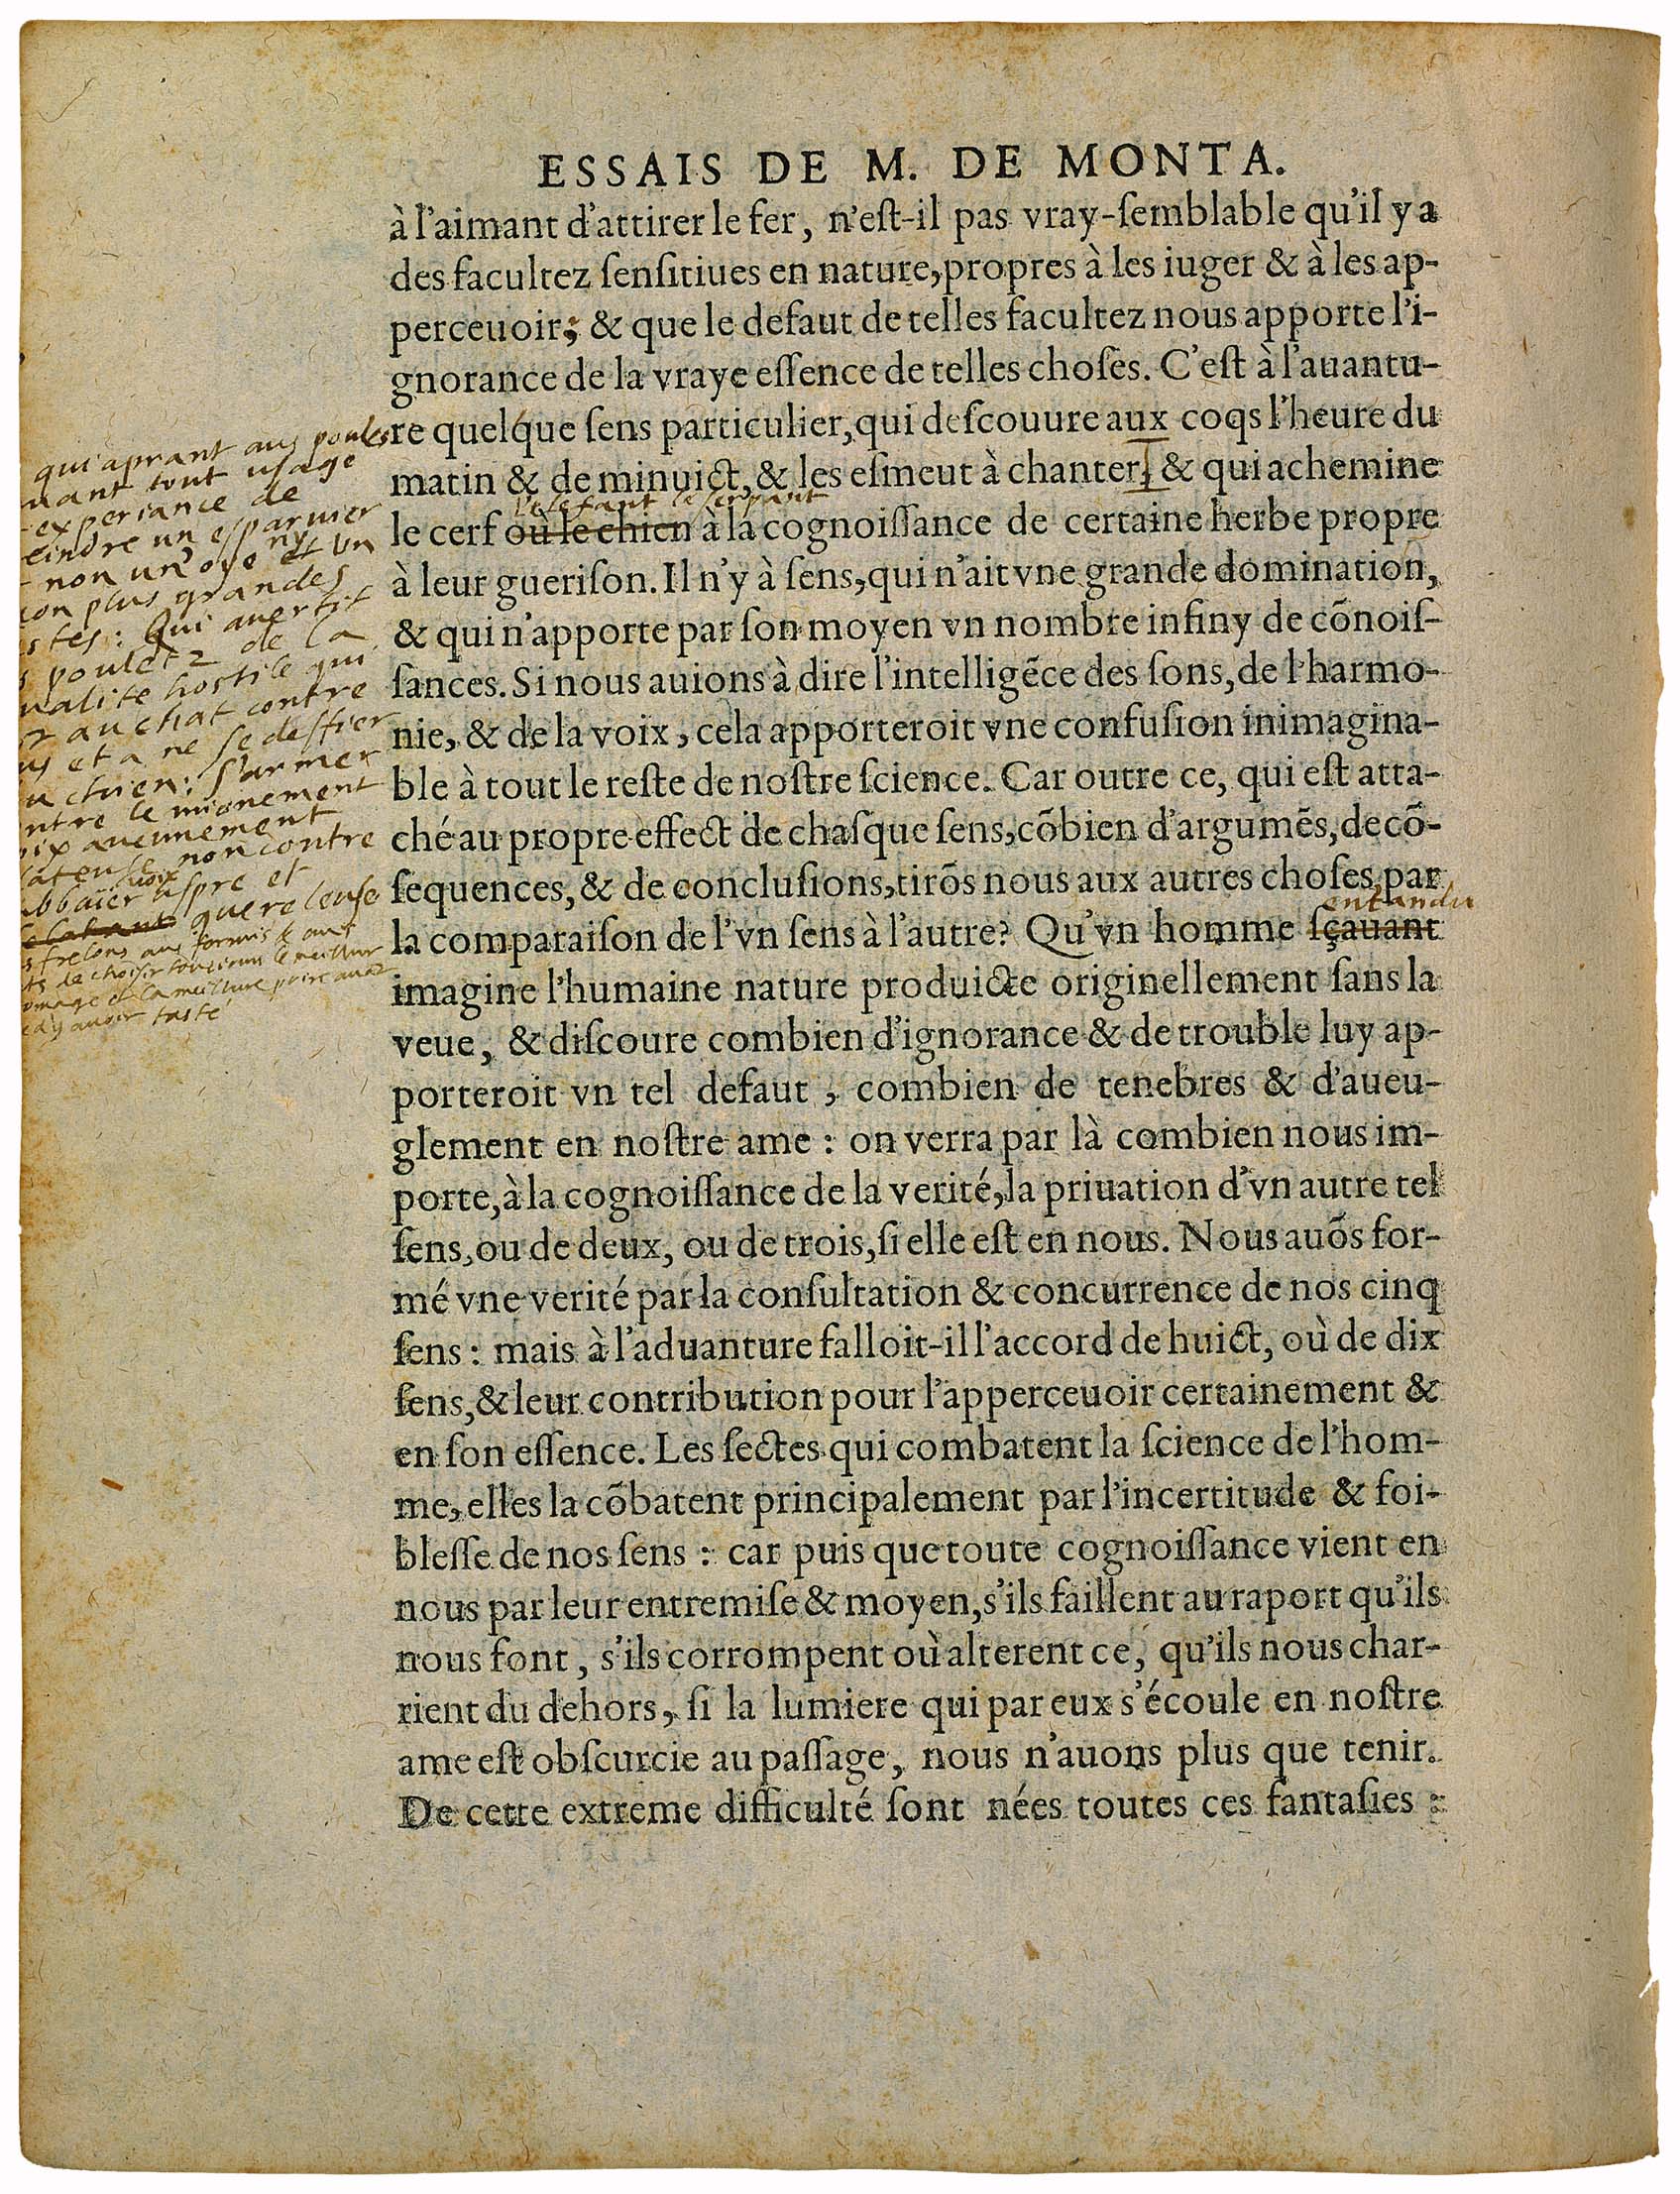 ESSAIS DE M. DE MONTA.
à l'aimant d'attirer le fer, n'eſt-il pas vray-ſemblable qu'il y a
des facultez ſenſitiues en nature, propres à les iuger & à les ap-
perceuoir; & que le defaut de telles facultez nous apporte l'i-
gnorance de la vraye eſſence de telles choſes. C'eſt à l'auantu-
re quelque ſens particulier, qui deſcouure aux coqs l'heure du
matin & de minuict, & les eſmeut à chanter, & qui achemine
l'elefant le serpant
le cerf où le chien à la cognoiſſance de certaine herbe propre
à leur gueriſon. Il n'y à ſens, qui n'ait vne grande domination,
& qui n'apporte par ſon moyen vn nombre infiny de cõnoiſ-
ſances. Si nous auions à dire l'intelligẽce des ſons, de l'harmo-
nie, & de la voix, cela apporteroit vne confuſion inimagina-
ble à tout le reſte de noſtre ſcience. Car outre ce, qui eſt atta-
ché au propre effect de chaſque ſens, cõbien d'argumẽs, de cõ-
ſequences, & de concluſions, tirõs nous aux autres choſes, par
entandu
la comparaiſon de l'vn ſens à l'autre? Qu'vn homme ſçauant
imagine l'humaine nature produicte originellement ſans la
veue, & diſcoure combien d'ignorance & de trouble luy ap-
porteroit vn tel defaut, combien de tenebres & d'aueu-
glement en noſtre ame : on verra par là combien nous im-
porte, à la cognoiſſance de la verité, la priuation d'vn autre tel
ſens, ou de deux, ou de trois, ſi elle eſt en nous. Nous auõs for-
mé vne verité par la conſultation & concurrence de nos cinq
ſens : mais à l'aduanture falloit-il l'accord de huict, où de dix
ſens, & leur contribution pour l'apperceuoir certainement &
en ſon eſſence. Les ſectes qui combatent la ſcience de l'hom-
me, elles la cõbatent principalement par l'incertitude & foi-
bleſſe de nos ſens : car puis que toute cognoiſſance vient en
nous par leur entremiſe & moyen, s'ils faillent au raport qu'ils
nous font, s'ils corrompent où alterent ce, qu'ils nous char-
rient du dehors, ſi la lumiere qui par eux s'écoule en noſtre
ame eſt obſcurcie au paſſage, nous n'auons plus que tenir.
De cette extreme difficulté ſont nées toutes ces fantaſies :
qui aprant aus poules
uant tout usage
experiance de
eindre un esparuier
non un'oye ny et un
on plus grandes
stes : Qui auertit
s pouletz de la
ualité hostile qui
au chat contre
us et a ne se deffier
u chien : S'armer
ntre le mionement
oix aucunement
flateuse non contre
abbaier voix aspre et
quereleuse
s frelons aus formis & aus
ts de choisir tousiours le meillur
omage et la meillure poire auant
d'y auoir tasté